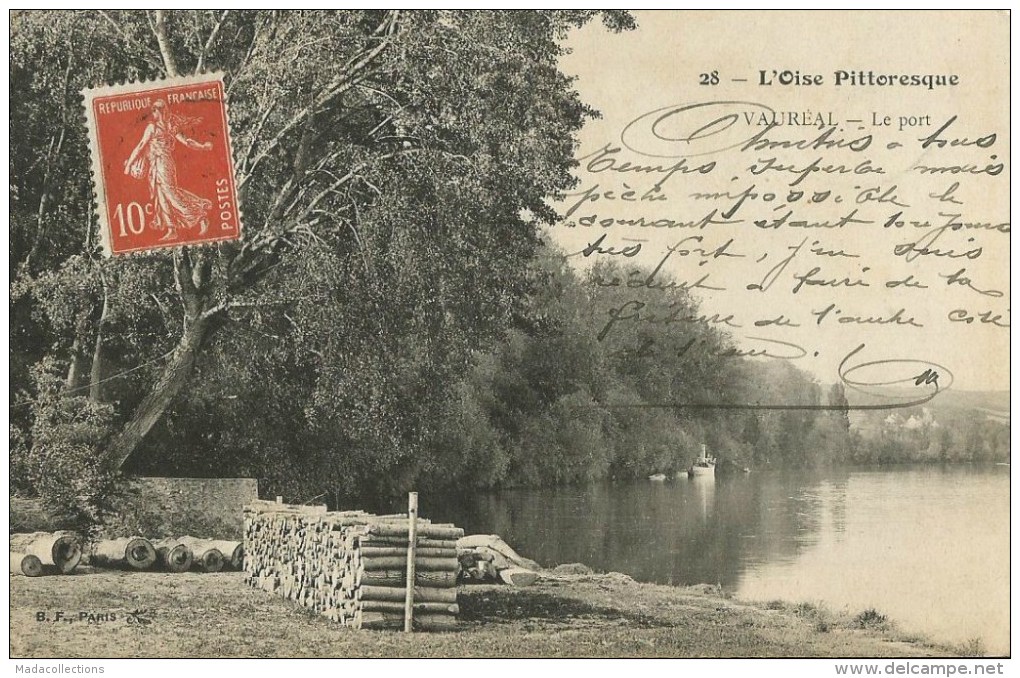 28 — L'Oise Pittoresque
VAURÉAL — Le port
REPUBLIQUE FRANÇAISE
10c
POSTES
Amitiés a tous
Temps superbe mais
pèche impossible le
courant étant toujours
très fort, j'en suis
réduit a faire de la
friture de l'autre coté
de l'eau.
B. F., PARIS
Madacollections
delcampe.net